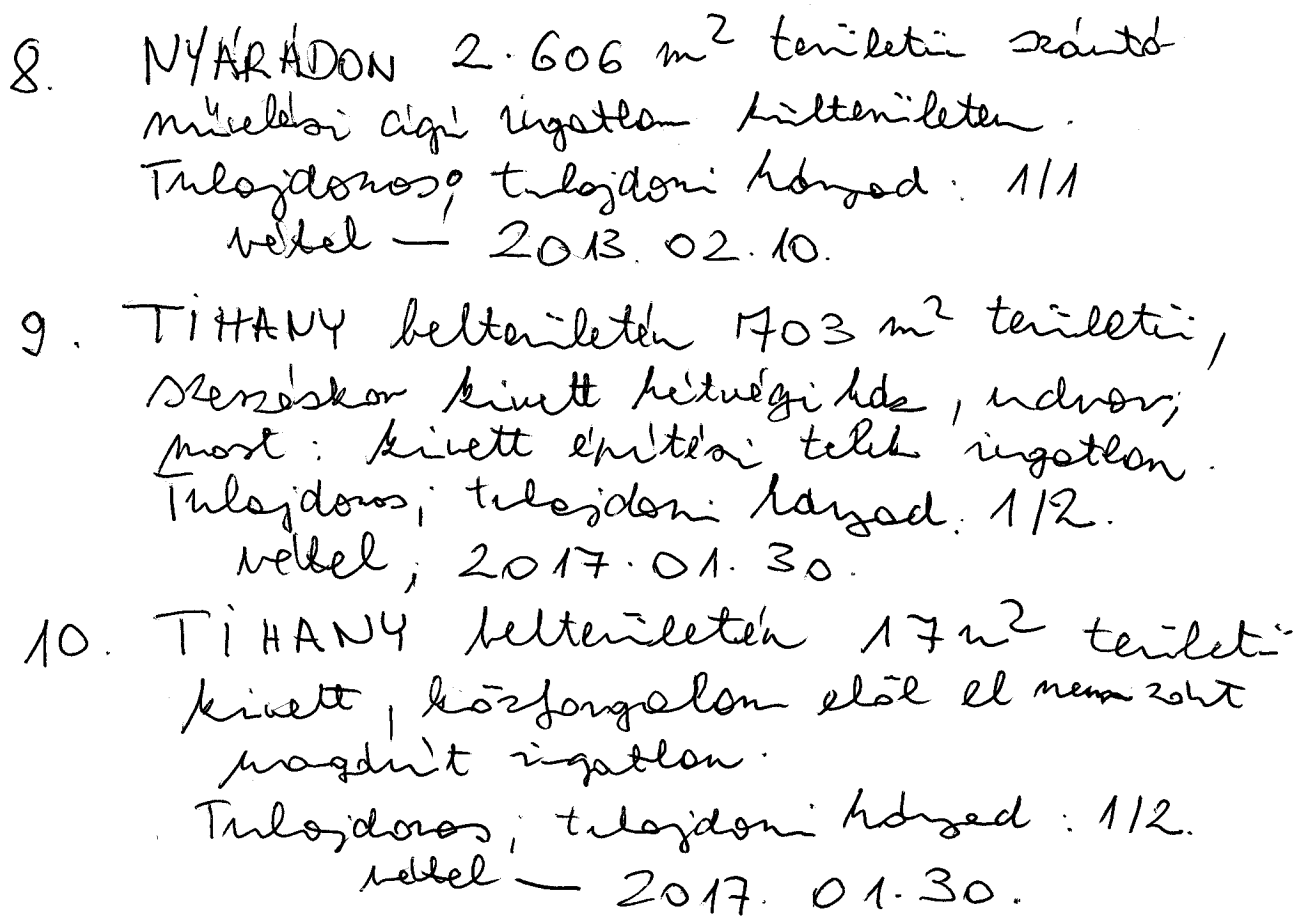 8. NYÁRÁDON 2.606 m² területű szántó
művelési ágú ingatlan külterületen.
Tulajdonos; tulajdoni hányad: 1/1
vétel – 2013. 02. 10.
9. TIHANY belterületén 1703 m² területű,
szerzéskor kivett hétvégi ház, udvar;
most: kivett építési telek ingatlan.
Tulajdonos; tulajdoni hányad: 1/2.
vétel, 2017. 01. 30.
10. TIHANY belterületén 17 m² területű
kivett, közforgalom elől el nem zárt
magánút ingatlan.
Tulajdonos; tulajdoni hányad: 1/2.
vétel – 2017. 01. 30.